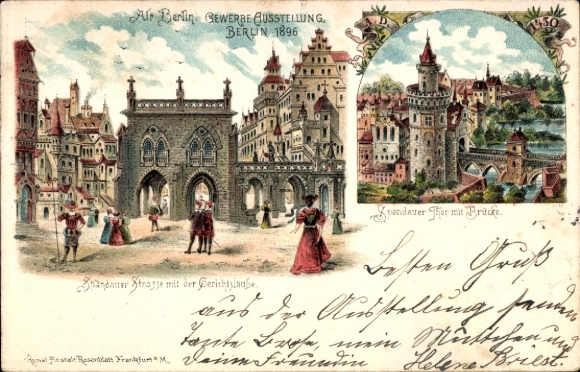 Alt Berlin. GEWERBE AUSSTELLUNG.
BERLIN 1896
A.D. 1450
Spandauer Thor mit Brücke.
Spandauer Strasse mit der Gerichtslaube.
Besten Gruß
aus der Ausstellung senden
Tante Lose, mein Muttchen und
Deine Freundin Helene Briest.
Kunst Anstalt Rosenblatt Frankfurt a/M.